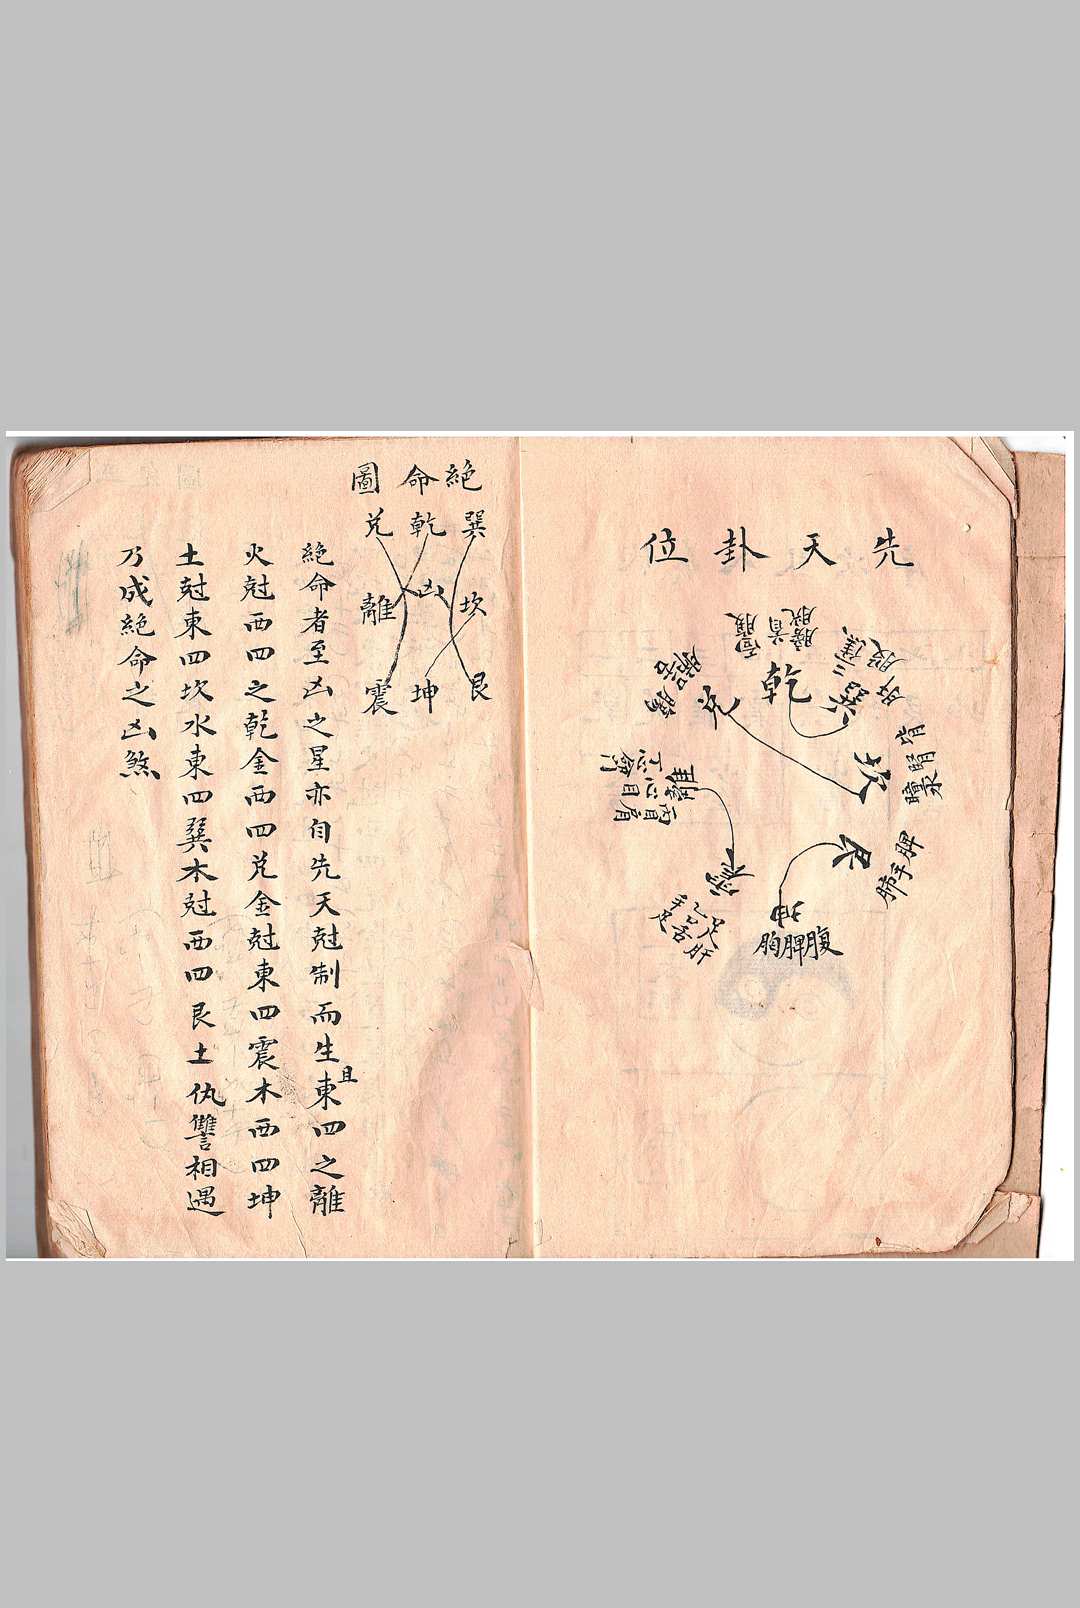 先天卦位
乾
兌
離
震
巽
坎
艮
坤
胸脾腹
肺手脾
絕命圖
巽乾兌
坎凶離
艮坤震
絕命者至凶之星亦自先天尅制而生且東四之離
火尅西四之乾金西四兌金尅東四震木西四坤
土尅東四坎水東四巽木尅西四艮土仇讐相遇
乃成絕命之凶煞